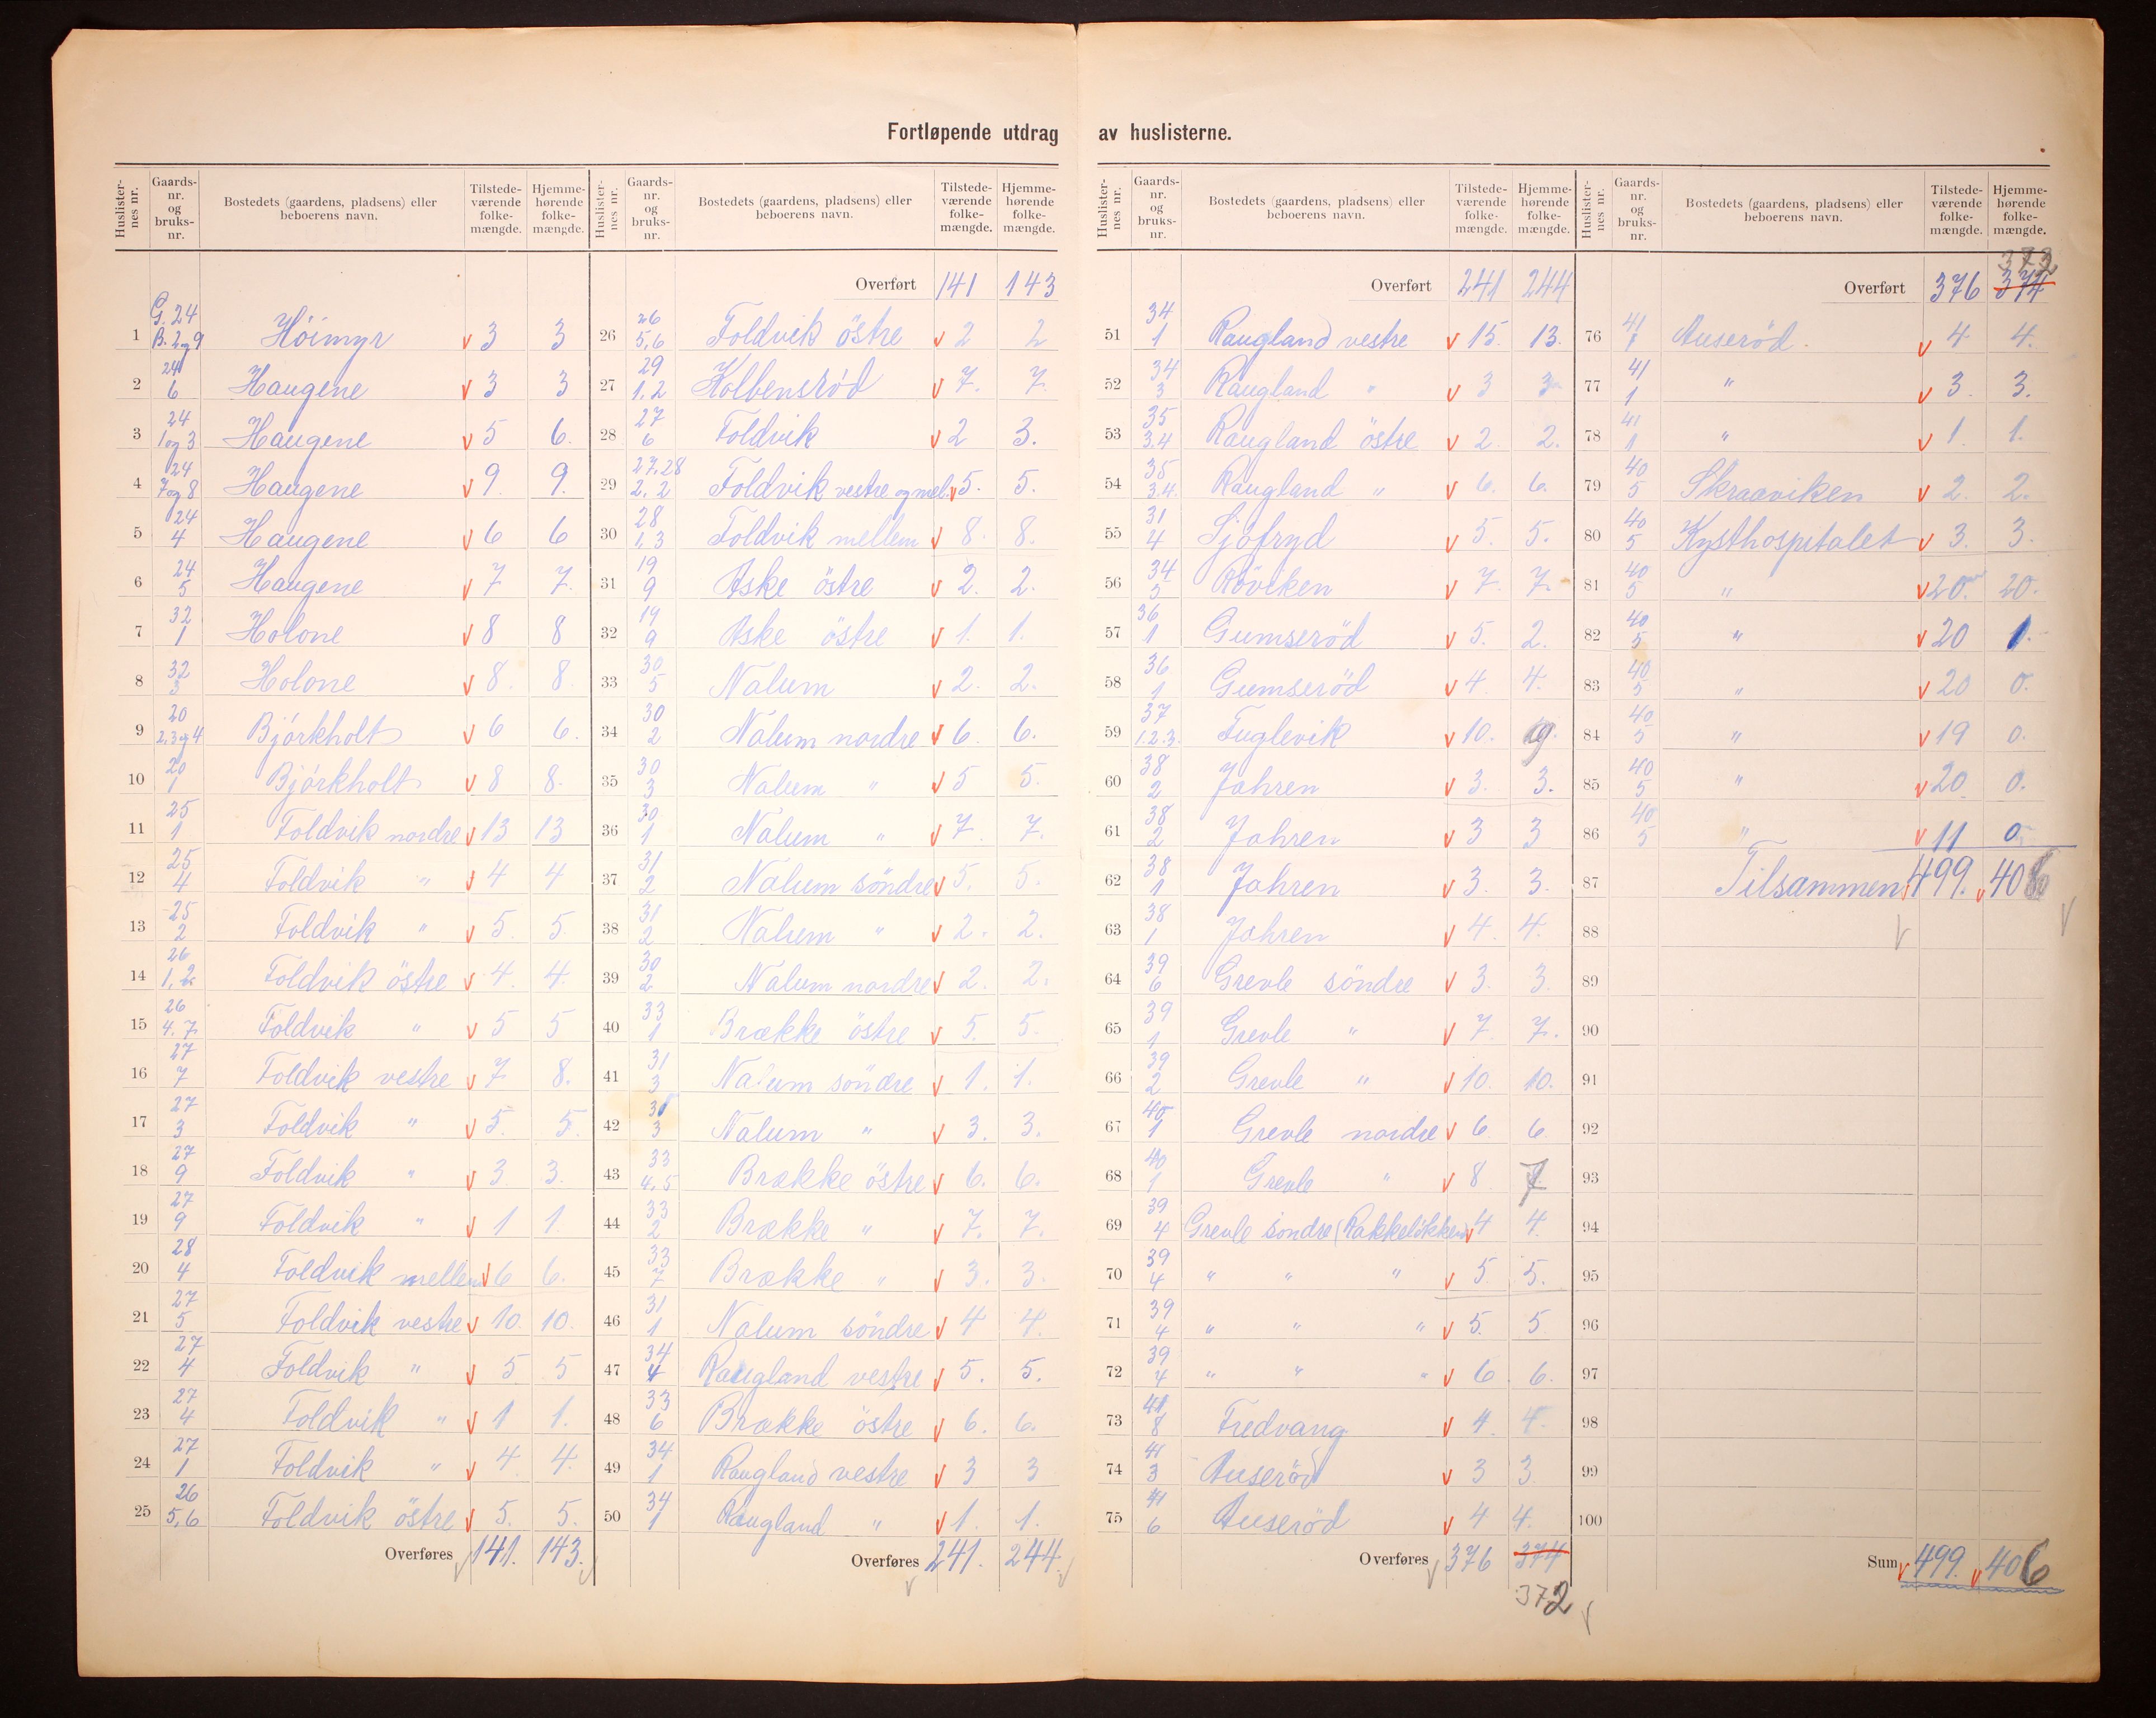 Fortløpende utdrag av huslisterne.
Huslister-nes nr. | Gaards-nr. og bruks-nr. | Bostedets (gaardens, pladsens) eller beboerens navn. | Tilstede-værende folke-mængde. | Hjemme-hørende folke-mængde.
1 G. 24 B. 2 og 9 Höimyr v 3 3
2 24 6 Haugene v 3 3
3 24 1 og 3 Haugene v 5 6.
4 24 7 og 8 Haugene v 9. 9.
5 24 4 Haugene v 6 6
6 24 5 Haugene v 7 7.
7 32 1 Holone v 8 8
8 32 3 Holone v 8. 8.
9 20 2, 3 og 4 Björkholt v 6 6.
10 20 1 Björkholt v 8 8.
11 25 1 Foldvik nordre v 13 13
12 25 4 Foldvik " v 4 4
13 25 2 Foldvik " v 5. 5.
14 26 1, 2 Foldvik östre v 4. 4.
15 26 4. 7 Foldvik " v 5 5
16 27 7 Foldvik vestre v 7 8.
17 27 3 Foldvik " v 5. 5.
18 27 9 Foldvik " v 3. 3.
19 27 9 Foldvik " v 1 1.
20 28 4 Foldvik mellem v 6 6.
21 27 5 Foldvik vestre v 10. 10.
22 27 4 Foldvik " v 5 5
23 27 4 Foldvik " v 1 1.
24 27 1 Foldvik " v 4 4.
25 26 5,6 Foldvik östre v 5. 5.
Overføres 141. 143.
Huslister-nes nr. | Gaards-nr. og bruks-nr. | Bostedets (gaardens, pladsens) eller beboerens navn. | Tilstede-værende folke-mængde. | Hjemme-hørende folke-mængde.
Overført 141 143
26 26 5,6 Foldvik östre v 2 2
27 29 1, 2 Kolbensröd v 7. 7.
28 27 6 Foldvik v 2 3.
29 27, 28 2, 2 Foldvik vestre og mel. v 5. 5.
30 28 1, 3 Foldvik mellem v 8. 8.
31 19 9 Aske östre v 2. 2.
32 19 9 Aske östre v 1. 1.
33 30 5 Nalum v 2. 2.
34 30 2 Nalum nordre v 6. 6.
35 30 3 Nalum " v 5 5.
36 30 1 Nalum " v 7. 7.
37 31 2 Nalum söndre v 5. 5.
38 31 2 Nalum " v 2. 2.
39 30 2 Nalum nordre v 2. 2.
40 33 1 Brække östre v 5. 5.
41 31 3 Nalum söndre v 1. 1.
42 31 3 Nalum " v 3. 3.
43 33 4, 5 Brække östre v 6. 6.
44 33 2 Brække " v 7. 7.
45 33 7 Brække " v 3. 3.
46 31 1 Nalum söndre v 4 4.
47 34 4 Raugland vestre v 5. 5.
48 33 6 Brække östre v 6. 6.
49 34 1 Raugland vestre v 3 3
50 34 1 Raugland " v 1. 1.
Overføres 241. 244.
Huslister-nes nr. | Gaards-nr. og bruks-nr. | Bostedets (gaardens, pladsens) eller beboerens navn. | Tilstede-værende folke-mængde. | Hjemme-hørende folke-mængde.
Overført 241 244
51 34 1 Raugland vestre v 15. 13.
52 34 3 Raugland " v 3 3
53 35 3.4 Raugland östre v 2. 2.
54 35 3.4. Raugland " v 6. 6.
55 31 4 Sjöfryd v 5. 5.
56 34 5 Röviken v 7. 7.
57 36 1 Gumseröd v 5. 2.
58 36 1 Gumseröd v 4. 4.
59 37 1.2.3. Fuglevik v 10. 9.
60 38 2 Jahren v 3. 3.
61 38 2 Jahren v 3 3
62 38 1 Jahren v 3. 3.
63 38 1 Jahren v 4. 4.
64 39 6 Grevle söndre v 3. 3.
65 39 1 Grevle " v 7. 7.
66 39 2 Grevle " v 10. 10.
67 40 1 Grevle nordre v 6 6
68 40 1 Grevle " v 8 7
69 39 4 Grevle söndre (Rakkelökken) v 4 4.
70 39 4 " " " v 5. 5.
71 39 4 " " " v 5. 5
72 39 4 " " " v 6 6.
73 41 8 Fredvang v 4. 4.
74 41 3 Auseröd v 3 3
75 41 6 Auseröd v 4 4.
Overføres 376 374
372
Huslister-nes nr. | Gaards-nr. og bruks-nr. | Bostedets (gaardens, pladsens) eller beboerens navn. | Tilstede-værende folke-mængde. | Hjemme-hørende folke-mængde.
372
Overført 376 374
76 41 Auseröd. v 4 4.
77 41 1 " v 3. 3.
78 41 1 " v 1. 1.
79 40 5 Skraaviken v 2. 2.
80 40 5 Kysthospitalet v 3. 3.
81 40 5 " v 20. 20.
82 40 5 " v 20 1.
83 40 5 " v 20 0.
84 40 5 " v 19 0.
85 40 5 " v 20. 0.
86 40 5 " v 11 0.
87 Tilsammen v 499. v 406
88
89
90
91
92
93
94
95
96
97
98
99
100
Sum v 499. v 406